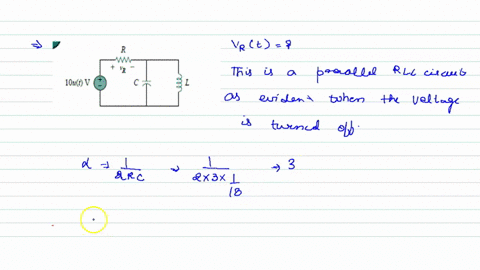 ⇒
R
+ vR −
10u(t) V
C
L
VR(t) = ?
This is a parallel RLC circuit
as evident when the voltage
is turned off.
α → 1/2RC → 1/2×3×1/18 → 3